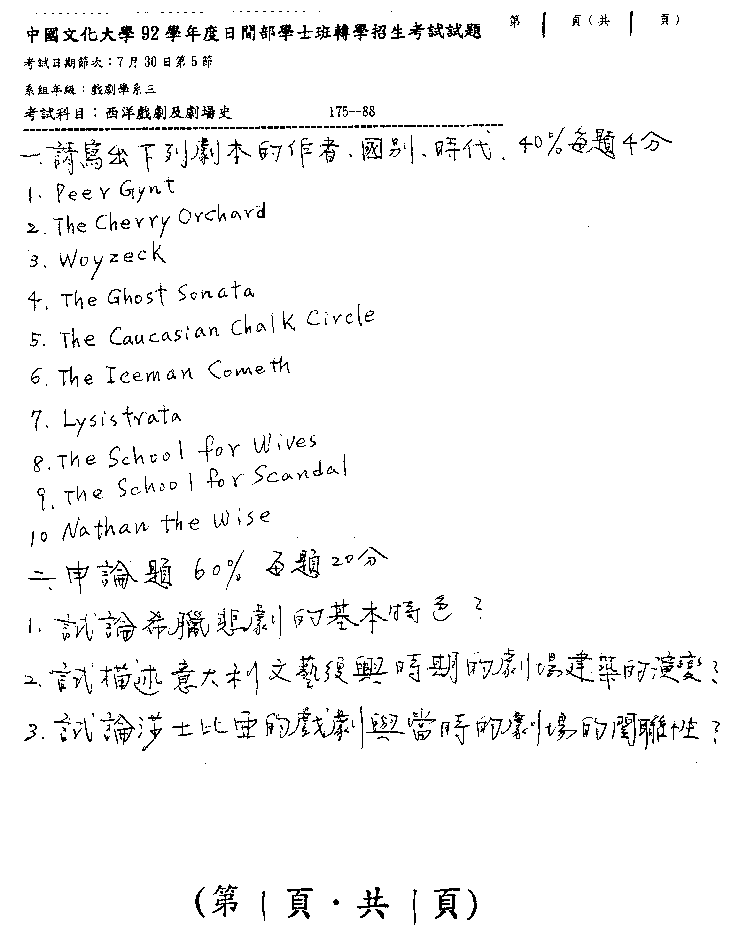 中國文化大學92學年度日間部學士班轉學招生考試試題 第 1 頁(共 1 頁)
考試日期節次:7月30日第5節
系組年級:戲劇學系三
考試科目:西洋戲劇及劇場史 175--88
一、請寫出下列劇本的作者、國別、時代、40%每題4分
1. Peer Gynt
2. The Cherry Orchard
3. Woyzeck
4. The Ghost Sonata
5. The Caucasian Chalk Circle
6. The Iceman Cometh
7. Lysistrata
8. The School for Wives
9. The School for Scandal
10 Nathan the Wise
二、申論題 60% 每題20分
1. 試論希臘悲劇的基本特色?
2. 試描述意大利文藝復興時期的劇場建築的演變?
3. 試論莎士比亞的戲劇與當時的劇場的關聯性?
(第 1 頁·共 1 頁)